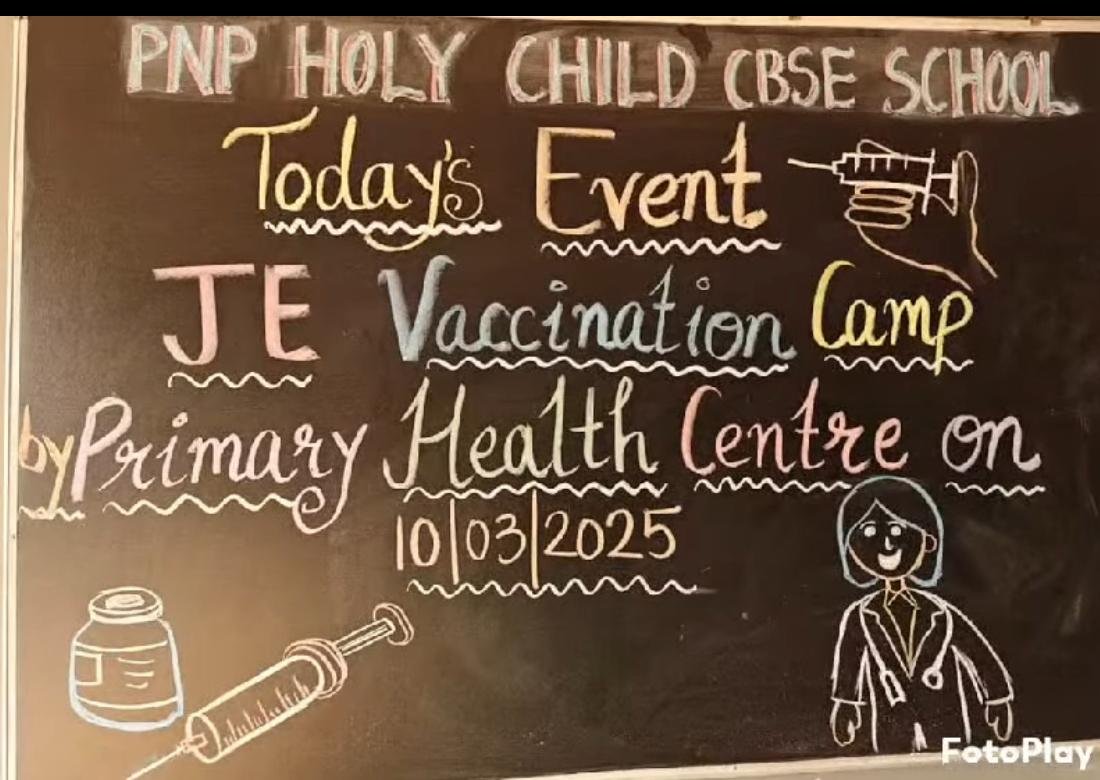 PNP HOLY CHILD CBSE SCHOOL
Today's Event
JE Vaccination Camp
by Primary Health Centre on
10|03|2025
FotoPlay